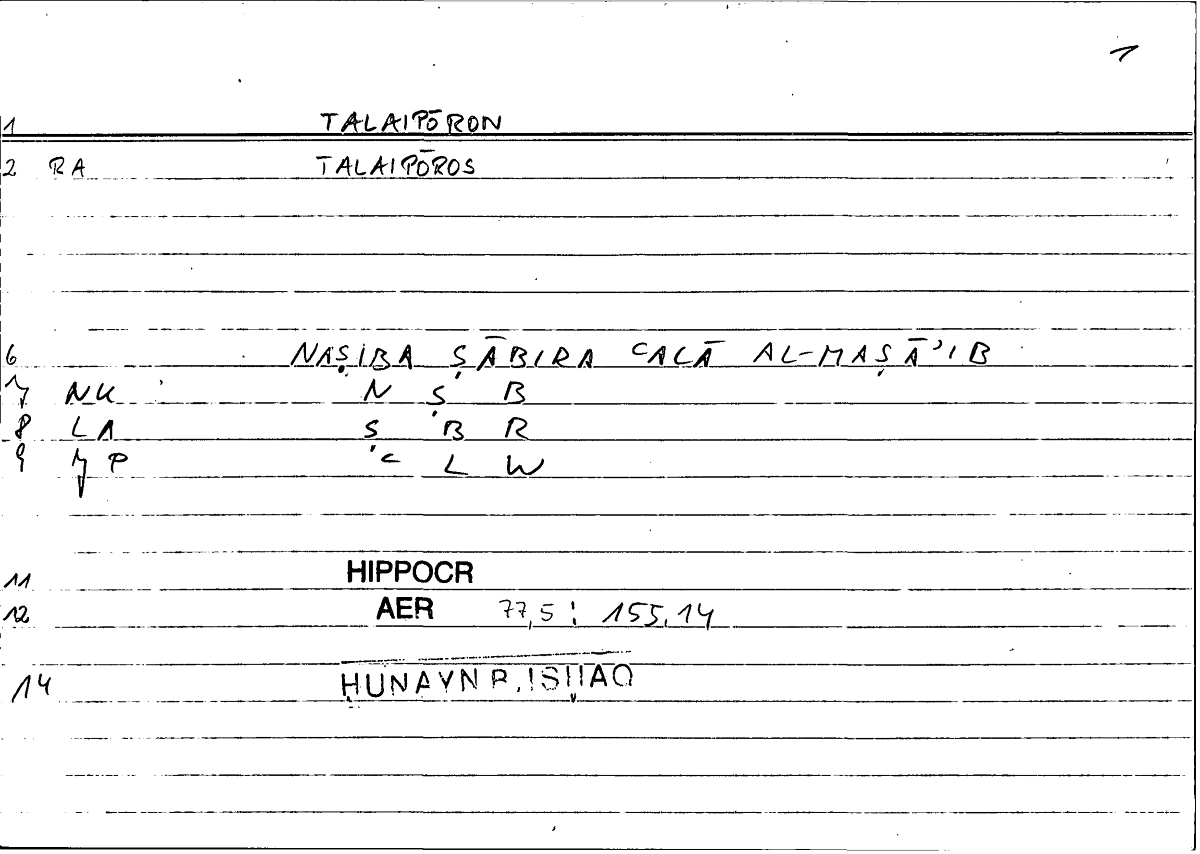 1
1 TALAIPŌRON
2 RA TALAIPŌROS
6 NAṢIBA ṢĀBIRA ʿALĀ AL-MAṢĀʾIB
7 NK N Ṣ B
8 LA Ṣ B R
9 YP ʿ L W
11 HIPPOCR
12 AER 77,5 : 155,14
14 ḤUNAYN B. ISḤĀQ